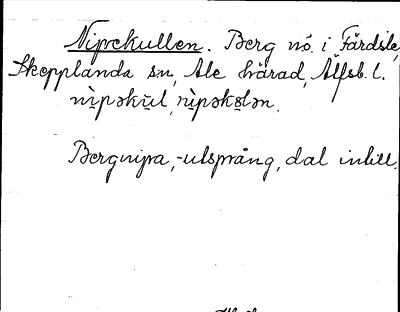 Nipekullen. Berg nö. i Färdsle,
Skepplanda sn, Ale härad, Älfsb. l.
nìpəkul, nìpəkulən.
Bergnipa, -utsprång, dal intill.